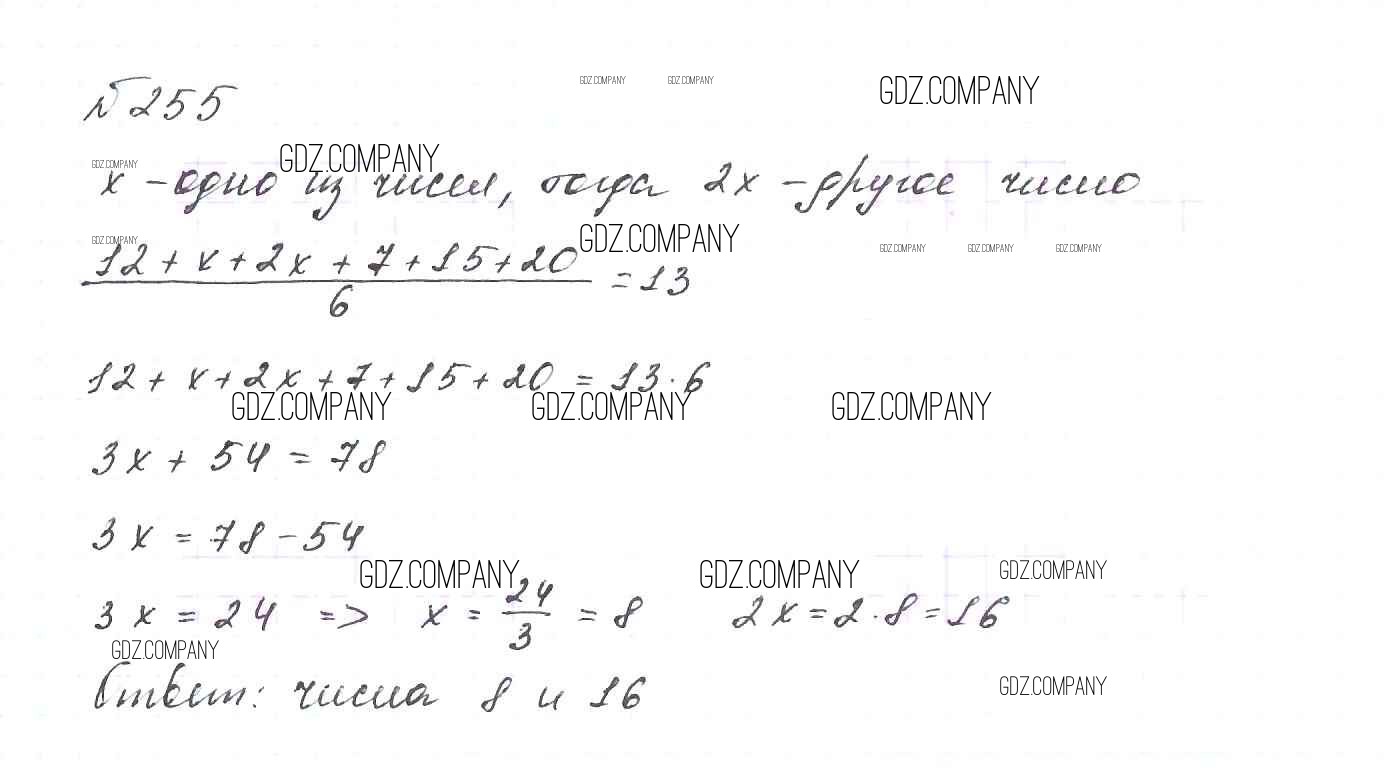 GDZ.COMPANY GDZ.COMPANY GDZ.COMPANY
№ 255
GDZ.COMPANY GDZ.COMPANY
x - одно из чисел, тогда 2x - другое число
GDZ.COMPANY GDZ.COMPANY GDZ.COMPANY GDZ.COMPANY GDZ.COMPANY
12 + x + 2x + 7 + 15 + 20
= 13
6
12 + x + 2x + 7 + 15 + 20 = 13 · 6
GDZ.COMPANY GDZ.COMPANY GDZ.COMPANY
3x + 54 = 78
3x = 78 - 54
GDZ.COMPANY GDZ.COMPANY GDZ.COMPANY
3x = 24 => x = 24/3 = 8 2x = 2 · 8 = 16
GDZ.COMPANY
Ответ: числа 8 и 16
GDZ.COMPANY